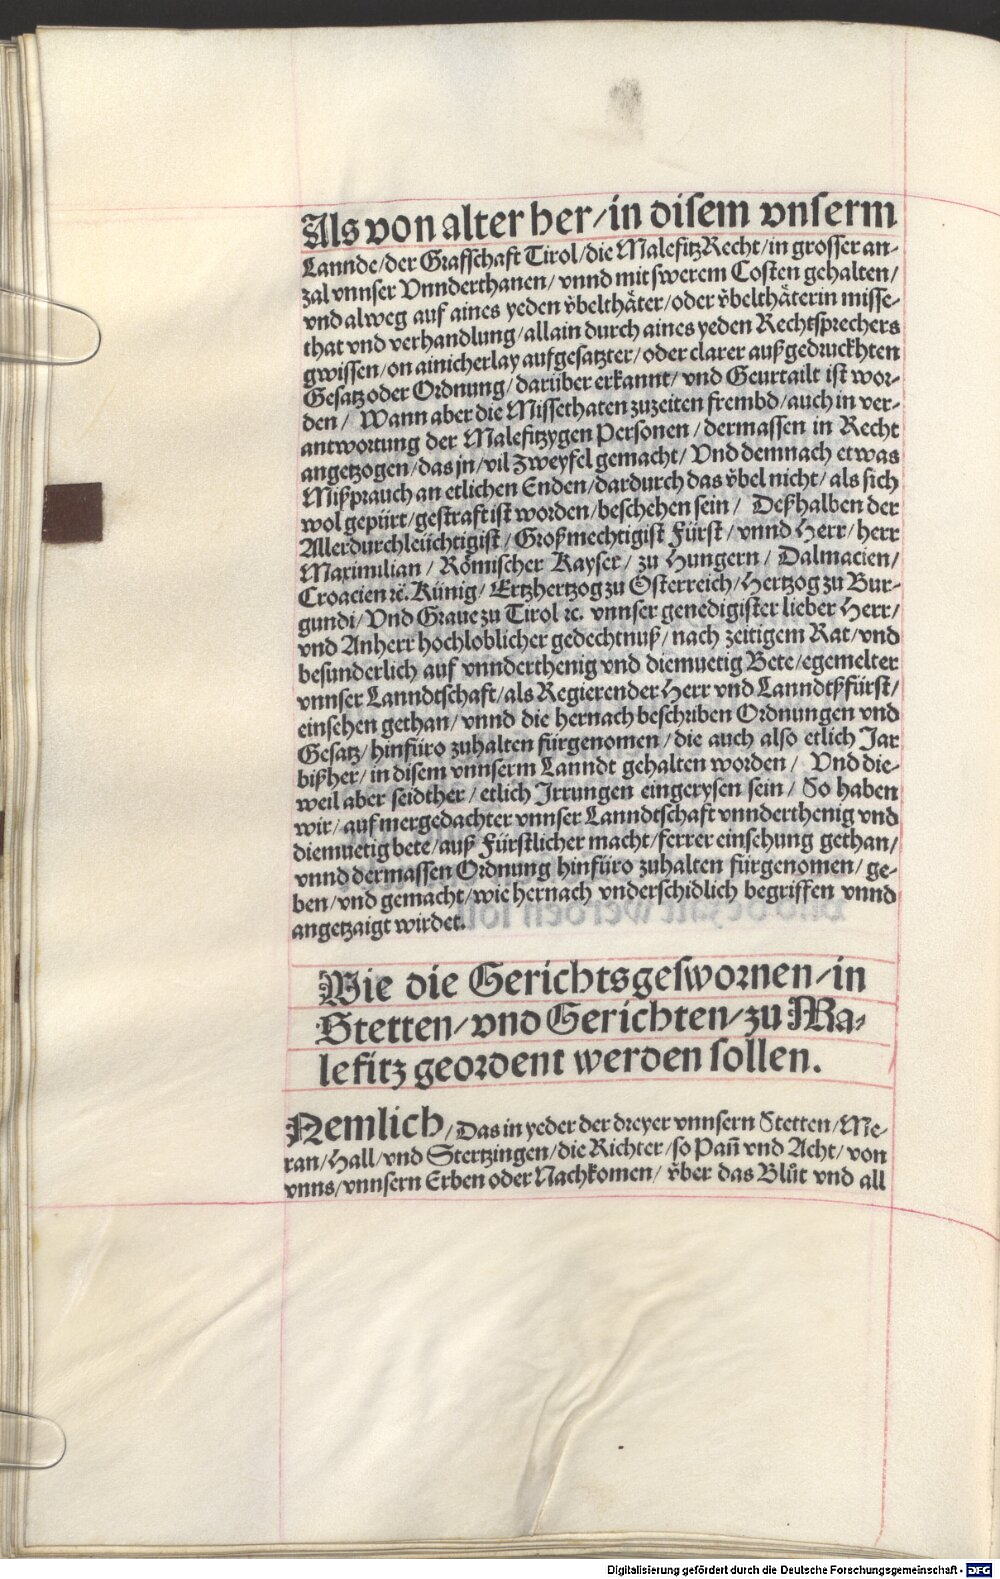 Als von alter her/in disem vnserm
Lannde/der Grafschaft Tirol/die MalefitzRecht/in grosser an-
zal vnnser Vnnderthanen/ vnnd mit swerem Costen gehalten/
vnd alweg auf aines yeden v̊belthäter/oder v̊belthäterin misse-
that vnd verhandlung/allain durch aines yeden Rechtsprechers
gwissen/on ainicherlay aufgesatzter/oder clarer außgedruckhten
Gesatz oder Ordnung/darüber erkannt/ vnd Geurtailt ist wor-
den/ Wann aber die Missethaten zuzeiten frembd/auch in ver-
antwortung der Malefitzygen Personen/dermassen in Recht
angetzogen/das jn/vil zweyfel gemacht/ Vnd demnach etwas
Mißprauch an etlichen Enden/dardurch das v̊bel nicht/als sich
wol gepürt/gestraft ist worden/beschehen sein/ Deßhalben der
Allerdurchleüchtigist/Großmechtigist Fürst/vnnd Herr/herr
Maximilian/ Römischer Kayser/ zu Hungern/ Dalmacien/
Croacien ꝛc. Künig/ Ertzhertzog zu Österreich/Hertzog zu Bur-
gundi/Vnd Graue zu Tirol ꝛc. vnnser genedigister lieber Herr/
vnd Anherr hochloblicher gedechtnuß/nach zeitigem Rat/vnd
besunderlich auf vnnderthenig vnd diemuetig Bete/egemelter
vnnser Lanndtschaft/als Regierender Herr vnd Lanndtßfürst/
einsehen gethan/ vnnd die hernach beschriben Ordnungen vnd
Gesatz/hinfüro zuhalten fürgenomen/die auch also etlich Jar
bißher/in disem vnnserm Lanndt gehalten worden/ Vnd die-
weil aber seidther/etlich Jrrungen eingerysen sein/ So haben
wir/auf mergedachter vnnser Lanndtschaft vnnderthenig vnd
diemuetig bete/auß Fürstlicher macht/ferrer einsehung gethan/
vnnd dermassen Ordnung hinfüro zuhalten fürgenomen/ ge-
ben/vnd gemacht/wie hernach vnderschidlich begriffen vnnd
angetzaigt wirdet.
Wie die Gerichtsgeswornen/in
Stetten/vnd Gerichten/zu Ma-
lefitz geordent werden sollen.
Nemlich/Das in yeder der dreyer vnnsern Stetten/Me-
ran/Hall/vnd Stertzingen/die Richter/so Pañ vnd Acht/von
vnns/vnnsern Erben oder Nachkomen/ v̊ber das Blůt vnd all
Digitalisierung gefördert durch die Deutsche Forschungsgemeinschaft - DFG